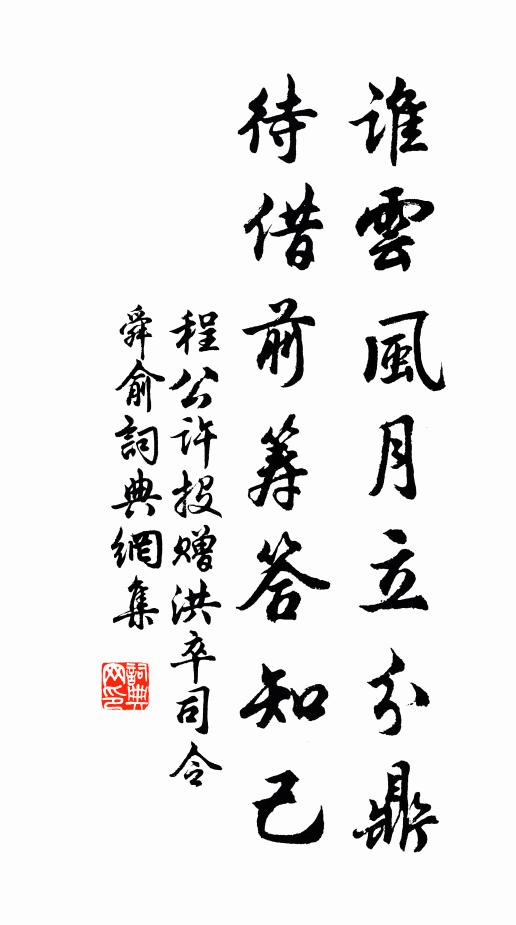 誰雲風月立分鼎
待借前筹答知己
程公許投贈洪卒司令
舜俞詞典網集
詞典网印